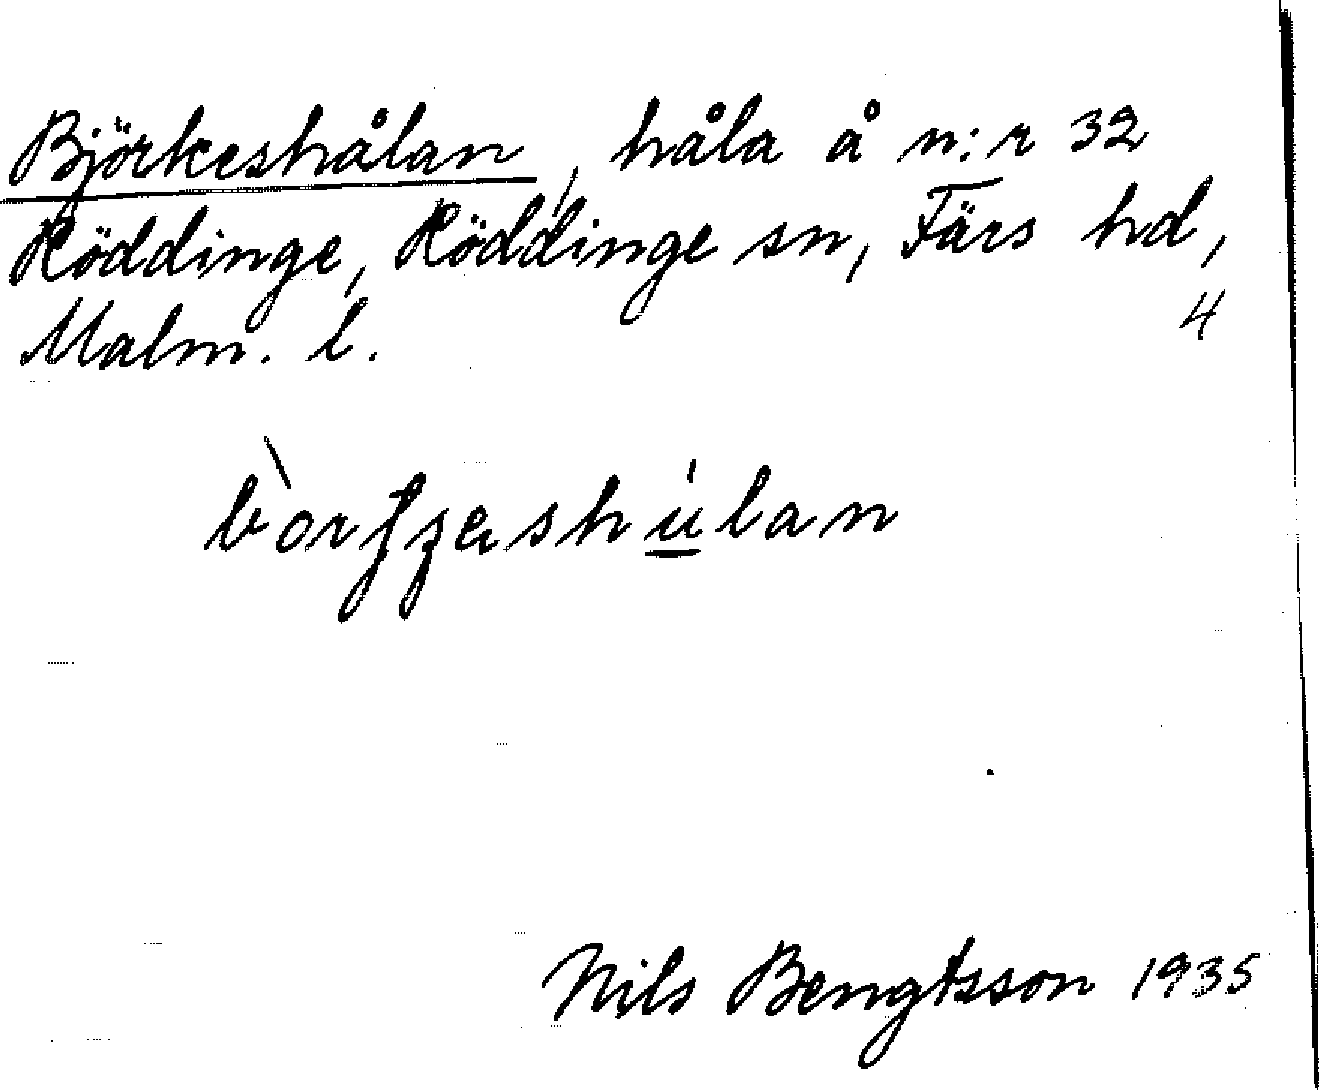 Björkeshålan, håla å n:r 32
Röddinge, Röddinge sn, Färs hd,
Malm. l. 4
Nils Bengtsson 1935